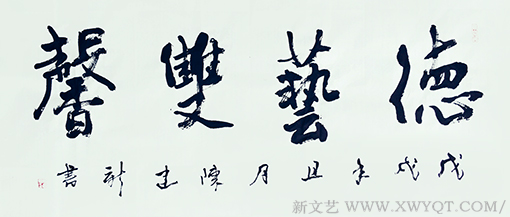 德藝雙馨
戊戌年且月陳建新書
新文艺 / WWW.XWYQT.COM